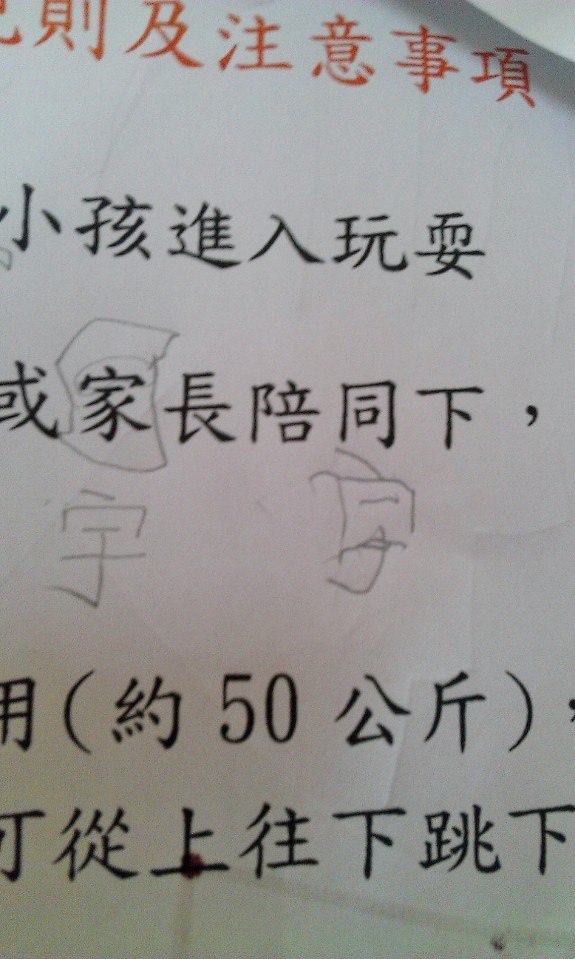 則及注意事項
小孩進入玩耍
或家長陪同下，
宇 字
用(約 50 公斤)，
可從上往下跳下